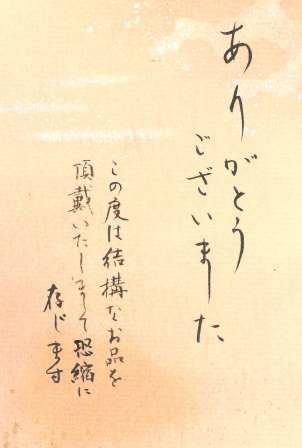 ありがとう
ございました
この度は結構なお品を
頂戴いたしまして恐縮に
存じます